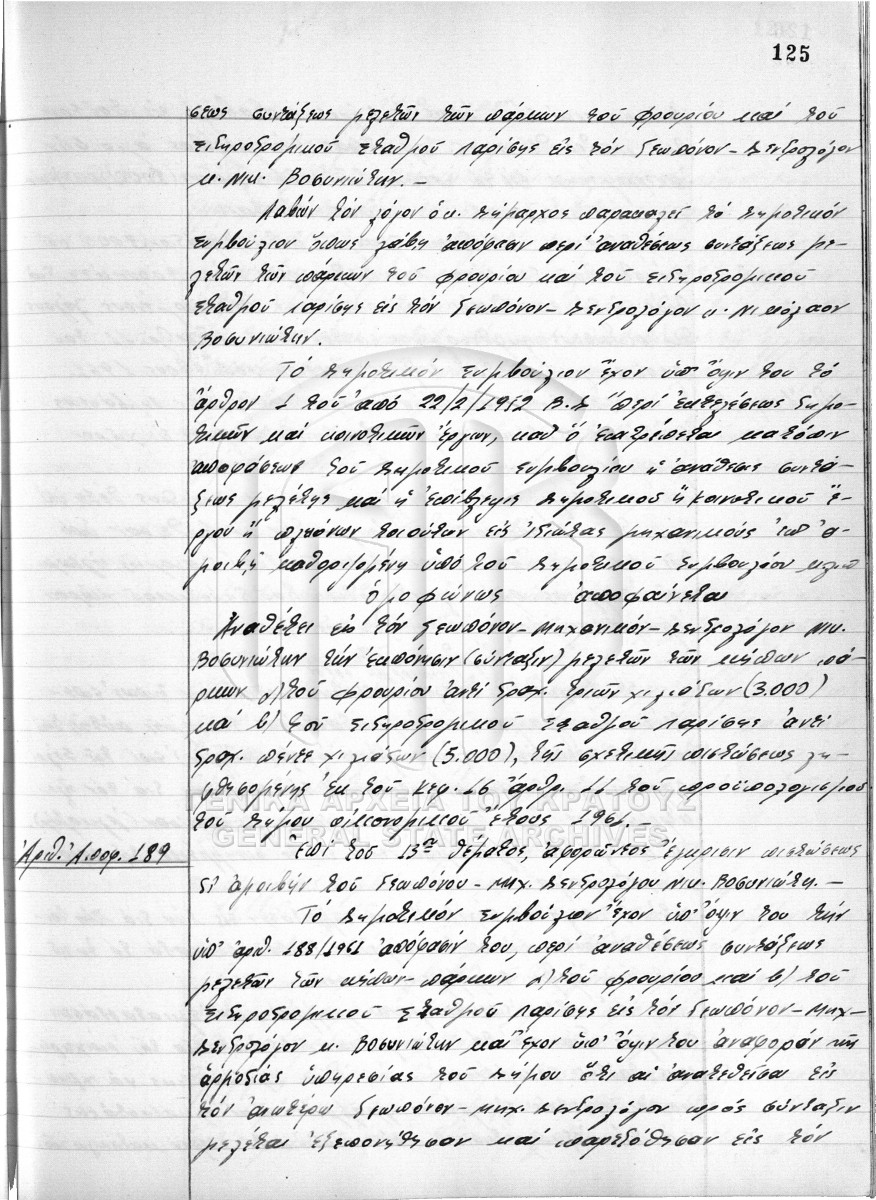 125
σεως συντάξεως μελετῶν τῶν πάρκων τοῦ φρουρίου καί τοῦ
Σιδηροδρομικοῦ Σταθμοῦ Λαρίσης εἰς τόν Γεωπόνον - Δενδρολόγον
κ. Νικ. Βοσυνιώτην. -
Λαβών τόν λόγον ὁ κ. Δήμαρχος παρακαλεῖ τό Δημοτικόν
Συμβούλιον ὅπως λάβη ἀπόφασιν περί ἀναθέσεως συντάξεως με-
λετῶν τῶν πάρκων τοῦ φρουρίου καί τοῦ Σιδηροδρομικοῦ
Σταθμοῦ Λαρίσης εἰς τόν Γεωπόνον - Δενδρολόγον κ. Νικόλαον
Βοσυνιώτην.
Τό Δημοτικόν Συμβούλιον ἔχον ὑπ' ὄψιν του τό
ἄρθρον 1 τοῦ ἀπό 22/2/1952 Β.Δ. "περί ἐκτελέσεως δημο-
τικῶν καί κοινοτικῶν ἔργων, καθ' ὅ ἐπιτρέπεται κατόπιν
ἀποφάσεως τοῦ Δημοτικοῦ Συμβουλίου ἡ ἀνάθεσις συντά-
ξεως μελέτης καί ἡ ἐπίβλεψις Δημοτικοῦ ἤ Κοινοτικοῦ ἔρ-
γου ἤ πλειόνων τοιούτων εἰς ἰδιώτας μηχανικούς ἐπ' ἀ-
μοιβῇ καθοριζομένη ὑπό τοῦ Δημοτικοῦ Συμβουλίου
ὁμοφώνως ἀποφαίνεται
Ἀναθέτει εἰς τόν Γεωπόνον - Μηχανικόν - Δενδρολόγον Νικ.
Βοσυνιώτην τήν ἐκπόνησιν (σύνταξιν) μελετῶν τῶν κήπων πά-
ρκων α) τοῦ φρουρίου ἀντί δραχ. τριῶν χιλιάδων (3.000)
καί β) τοῦ Σιδηροδρομικοῦ Σταθμοῦ Λαρίσης ἀντί
δραχ. πέντε χιλιάδων (5.000), τῆς σχετικῆς πιστώσεως λη-
φθησομένης ἐκ τοῦ Κεφ. 16 ἄρθρ. 11 τοῦ προϋπολογισμοῦ
τοῦ Δήμου οἰκονομικοῦ ἔτους 1961. -
ΓΕΝΙΚΑ ΑΡΧΕΙΑ ΤΟΥ ΚΡΑΤΟΥΣ
GENERAL STATE ARCHIVES
Ἀριθ. Ἀποφ. 189
Ἐπί τοῦ 13ου θέματος, ἀφορῶντος ἔγκρισιν πιστώσεως
δι' ἀμοιβήν τοῦ Γεωπόνου - Μηχ. Δενδρολόγου Νικ. Βοσυνιώτη. -
Τό Δημοτικόν Συμβούλιον ἔχον ὑπ' ὄψιν του τήν
ὑπ' ἀριθ. 188/1961 ἀπόφασίν του, περί ἀναθέσεως συντάξεως
μελετῶν τῶν κήπων - πάρκων α) τοῦ φρουρίου καί β) τοῦ
Σιδηροδρομικοῦ Σταθμοῦ Λαρίσης εἰς τόν Γεωπόνον - Μηχ. -
Δενδρολόγον κ. Βοσυνιώτην καί ἔχον ὑπ' ὄψιν του ἀναφοράν τῆς
ἁρμοδίας ὑπηρεσίας τοῦ Δήμου ὅτι αἱ ἀνατεθεῖσαι εἰς
τόν ἀνωτέρω Γεωπόνον - Μηχ. Δενδρολόγον πρός σύνταξιν
μελέται ἐξεπονήθησαν καί παρεδόθησαν εἰς τόν